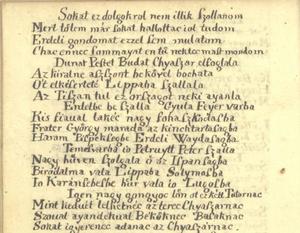 Sokat ez dolgokrol nem illik szollanom
Mert tőlem már sokat hallottac iol tudom
Erdeli gondomat ezzel sem mulatom
Chac ennec sommayat en tü nektec mast mondom
Dunat Pestet Budat Chyaszar elfoglala
Az kiralne aszszont be kőyel bochata
Őt elkisertetē Lippaba szallala
Az Tiszan tul ez orszagot neki ayanla
Erdelbe be szalla Gyula Feyer varba
Kis fiaual lakec nagy
Frater György marada az kinchtartosagba
Haram Pispőksegbe Erdeli Waydasagba
Temesvarba io Petruytt Peter szalla
Nagy hűven szolgala ő az Ispansagba
Birodalma vala Lippaba Solymosba
Io Karansebesbe hűr vala io Lugosba
Igen nagy gongyoc lőn ot ez két
Mint keduét lelhetnec az terec Chyaszarnac
Szouat ayandekual Bekőknec Basaknac
Sokat igyerenec adanac az Chyaszarnac